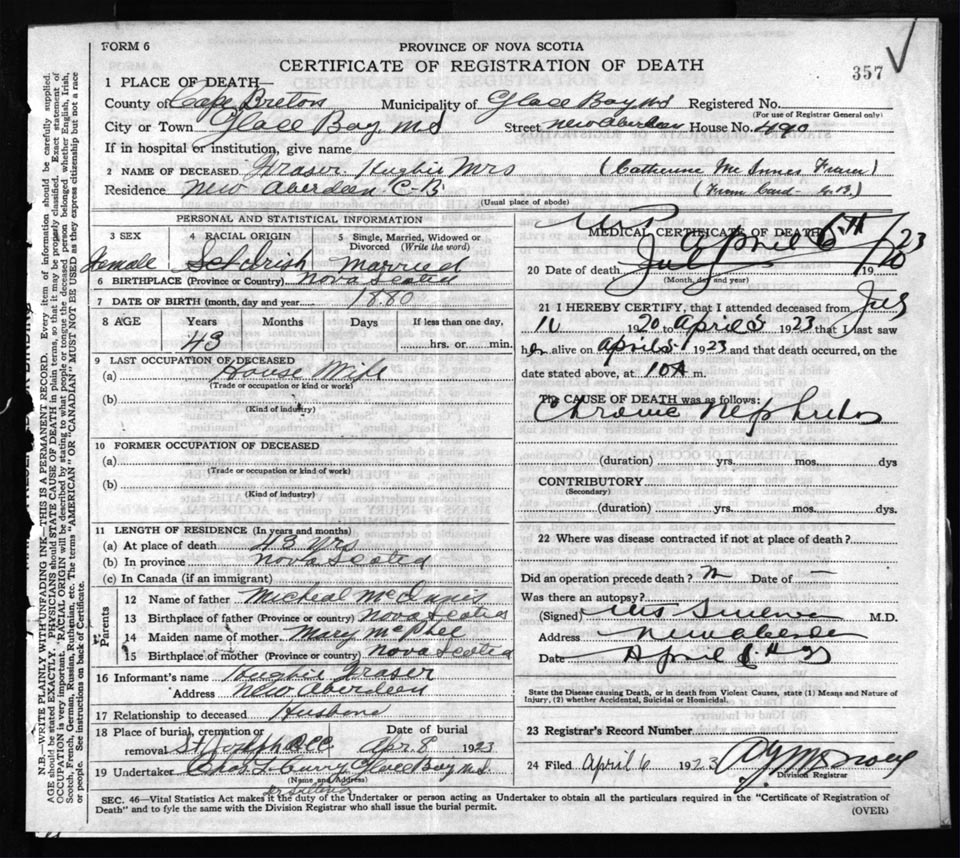 FORM 6
PROVINCE OF NOVA SCOTIA
CERTIFICATE OF REGISTRATION OF DEATH
357
1 PLACE OF DEATH—
County of Cape Breton Municipality of Glace Bay, N S Registered No.
(For use of Registrar General only)
City or Town Glace Bay, N S Street New Aberdeen House No. 490
If in hospital or institution, give name
2 NAME OF DECEASED Fraser Hughie Mrs (Catherine Mc Innes Fraser)
Residence New Aberdeen C-B (From Card -
(Usual place of abode)
PERSONAL AND STATISTICAL INFORMATION
3 SEX 4 RACIAL ORIGIN 5 Single, Married, Widowed or Divorced (Write the word)
Female Sct Irish Married
6 BIRTHPLACE (Province or Country) Nova Scotia
7 DATE OF BIRTH (month, day and year) 1880
8 AGE Years Months Days If less than one day,
43 hrs. or min.
9 LAST OCCUPATION OF DECEASED
(a) House Wife
(Trade or occupation or kind or work)
(b)
(Kind of industry)
10 FORMER OCCUPATION OF DECEASED
(a)
(Trade or occupation or kind of work)
(b)
(Kind of industry)
11 LENGTH OF RESIDENCE (In years and months)
(a) At place of death 43 yrs
(b) In province Nova Scotia
(c) In Canada (if an immigrant)
Parents
12 Name of father Micheal McInnis
13 Birthplace of father (Province or country) Nova Scotia
14 Maiden name of mother Mary McPhee
15 Birthplace of mother (Province or country) Nova Scotia
16 Informant's name Hughie Fraser
Address New Aberdeen
17 Relationship to deceased Husband
18 Place of burial, cremation or removal St Joseph Date of burial Apr. 8 1923
19 Undertaker Glace Bay N.S.
(Name and Address)
MEDICAL CERTIFICATE OF DEATH
April 6TH /23
20 Date of death July 1920
(Month, day and year)
21 I HEREBY CERTIFY, that I attended deceased from July
10 1920 to April 5 1923 that I last saw
her alive on April 5 1923 and that death occurred, on the
date stated above, at 10 A m.
The CAUSE OF DEATH was as follows:
Chronic Nephritis
(duration) yrs. mos. dys
CONTRIBUTORY
(Secondary)
(duration) yrs. mos. dys.
22 Where was disease contracted if not at place of death?
Did an operation precede death? N Date of —
Was there an autopsy?
(Signed) M.D.
Address New Aberdeen
Date April
State the Disease causing Death, or in death from Violent Causes, state (1) Means and Nature of
Injury, (2) whether Accidental, Suicidal or Homicidal.
23 Registrar's Record Number
24 Filed April 6 1923
Division Registrar
SEC. 46—Vital Statistics Act makes it the duty of the Undertaker or person acting as Undertaker to obtain all the particulars required in the "Certificate of Registration of
Death" and to fyle the same with the Division Registrar who shall issue the burial permit.
(OVER)
N.B.—WRITE PLAINLY WITH UNFADING INK—THIS IS A PERMANENT RECORD. Every item of information should be carefully supplied.
AGE should be stated EXACTLY. PHYSICIANS should STATE CAUSE OF DEATH in plain terms, so that it may be properly classified. Exact statement of
OCCUPATION is very important. RACIAL ORIGIN will be described by stating to what people or tongue the deceased person belonged whether English, Irish,
Scotch, French, German, Russian, Ruthenian, etc. The terms "AMERICAN" OR "CANADIAN" MUST NOT BE USED as they express citizenship but not a race
or people. See instructions on back of Certificate.